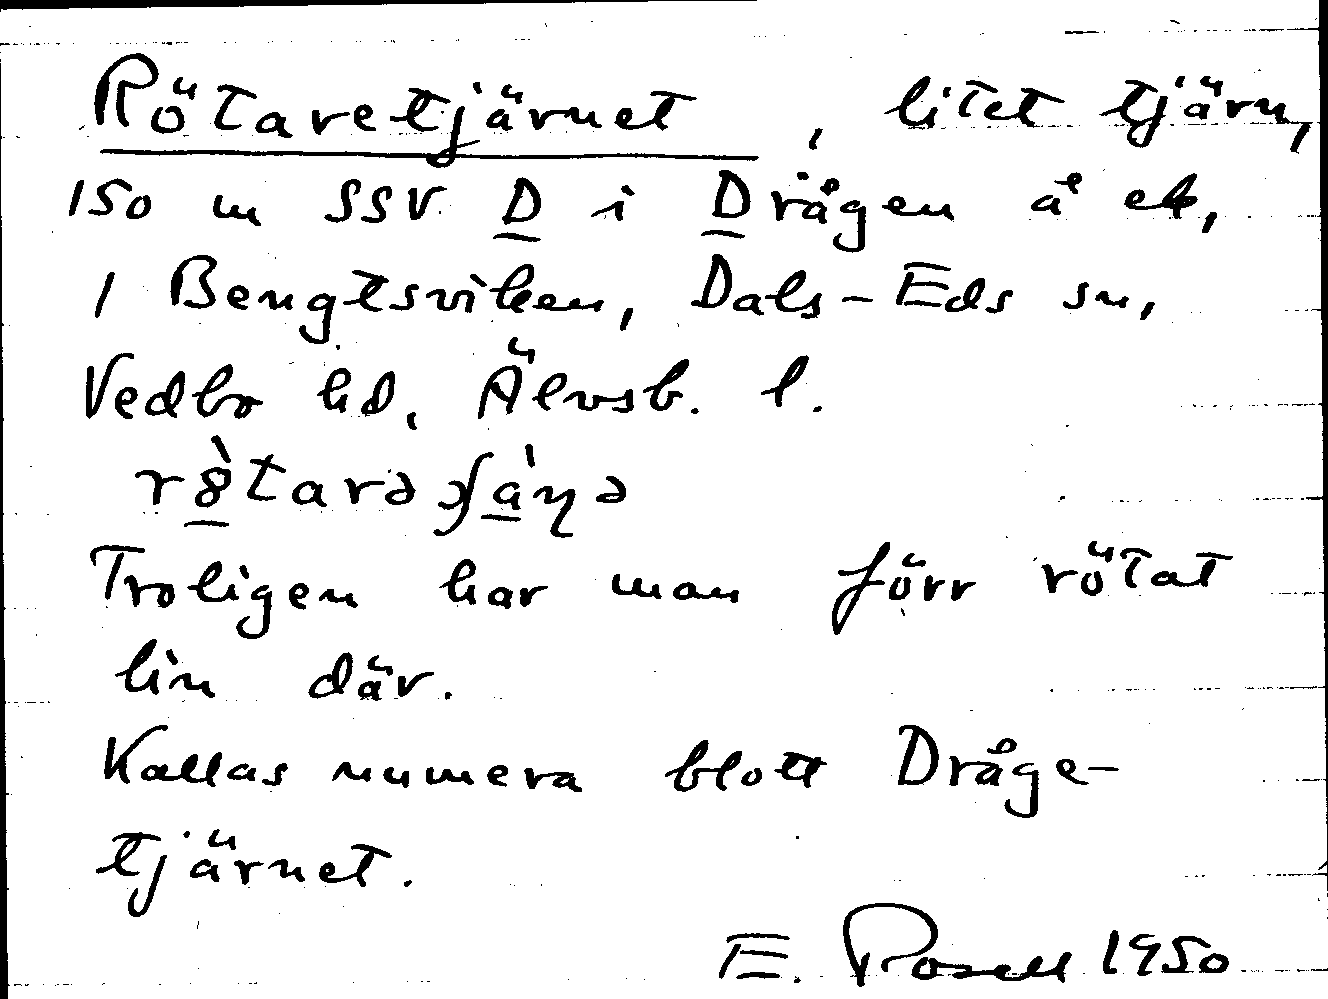 Rötaretjärnet, litet tjärn,
150 m SSV D i Drågen å ek,
1 Bengtsviken, Dals-Eds sn,
Vedbo hd, Älvsb. l.
Troligen har man förr rötat
lin där.
Kallas numera blott Dråge-
tjärnet.
E. Rosell 1950